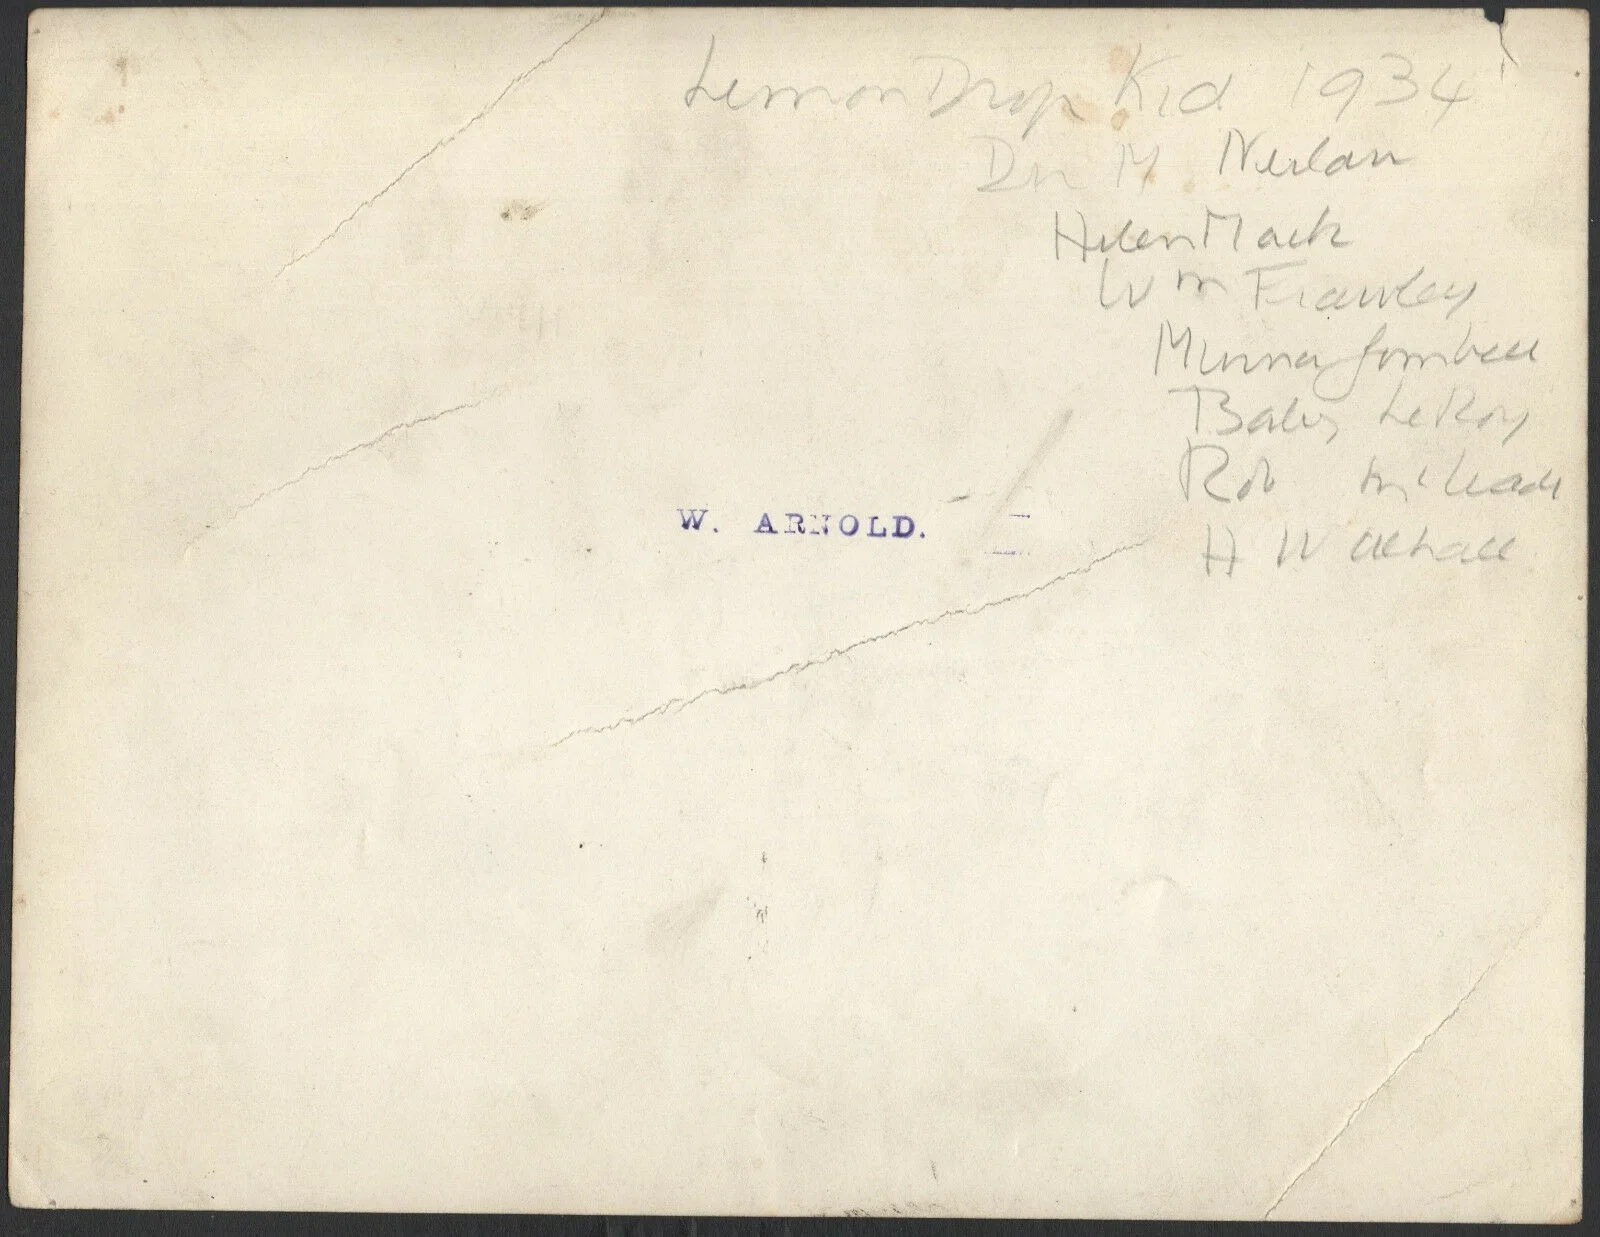 Lemon Drop Kid 1934
Dir M Neilan
Helen Mack
Wm Frawley
Minna Gombell
Baby LeRoy
Rob McWade
H Walthall
W. ARNOLD.